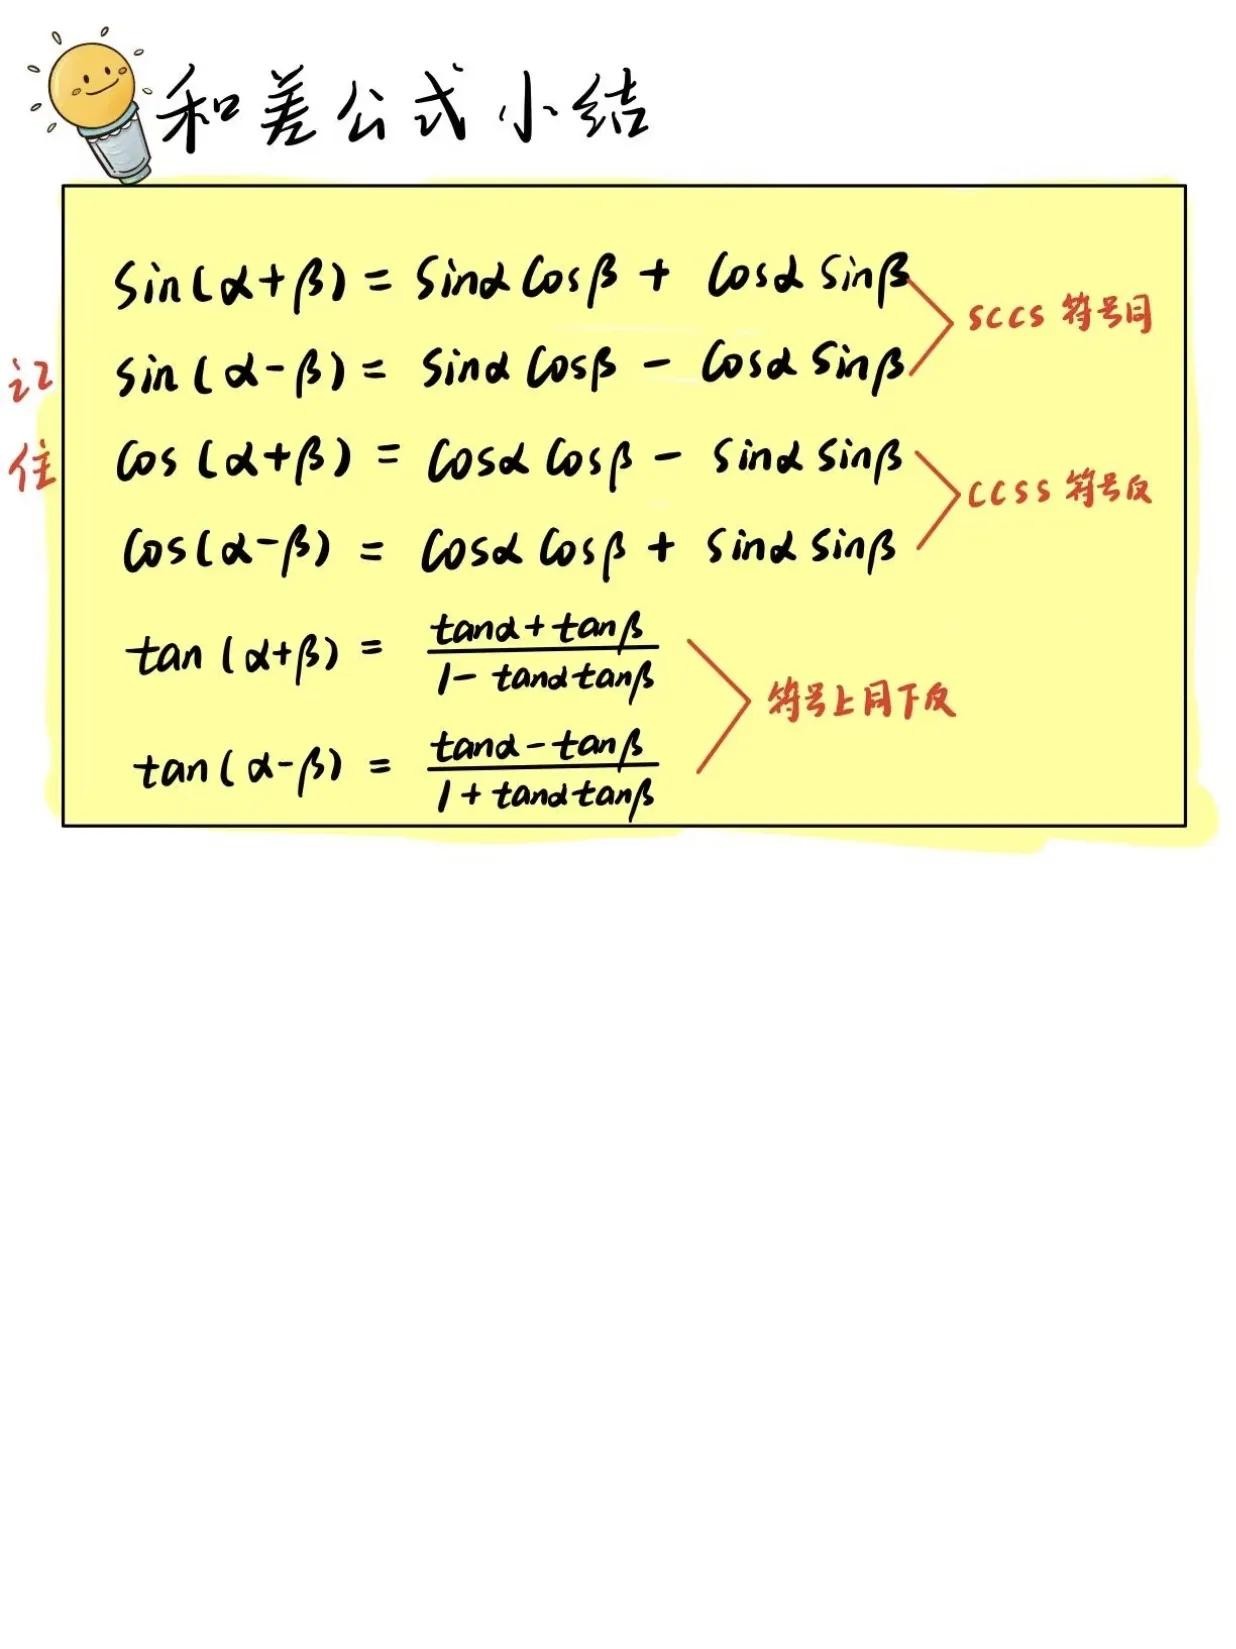 和差公式小结
sin(α+β) = sinα cosβ + cosα sinβ
sin(α-β) = sinα cosβ - cosα sinβ
sccs 符号同
cos(α+β) = cosα cosβ - sinα sinβ
cos(α-β) = cosα cosβ + sinα sinβ
ccss 符号反
tan(α+β) = (tanα+tanβ)/(1-tanαtanβ)
tan(α-β) = (tanα-tanβ)/(1+tanαtanβ)
符号上同下反
记住